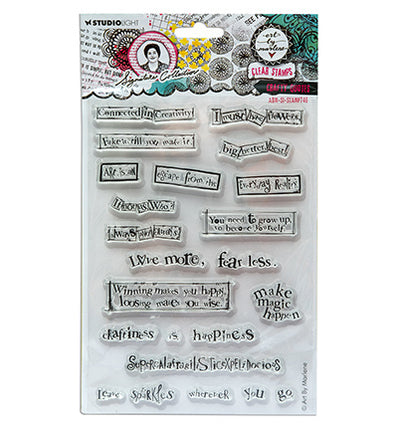 STUDIOLIGHT
art
by
marlene
Signature Collection
CLEAR STAMPS
CRAFTY QUOTES
ABM-SI-STAMP746
Connected in Creativity!
I must have flowers.
Fake it till you make it!
big better best!
Art is an
escape from the
Everyday Reality
You need to grow up,
to become yourself.
Always
Love more, fear less.
Winning makes you happy
loosing makes you wise.
make
magic
happen
craftiness is happiness
leave sparkles wherever you go
© Art By Marlene